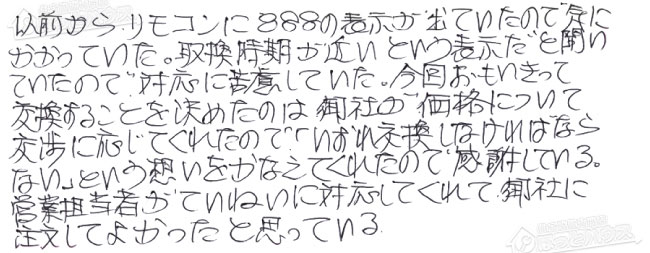 以前から リモコンに888の表示が出ていたので気に
かかっていた。取換時期が近いという表示だと聞い
ていたので対応に苦慮していた。今回おもいきって
交換することを決めたのは御社が価格について
交渉に応じてくれたので「いずれ交換しなければなら
ない」という想いをかなえてくれたので感謝している。
営業担当者がていねいに対応してくれて御社に
注文してよかったと思っている